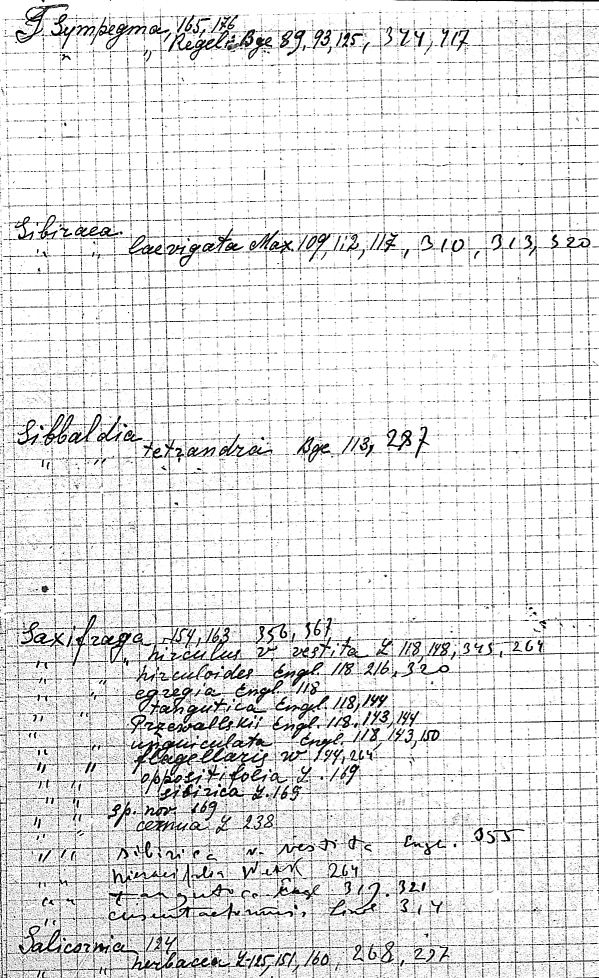 Sympegma, 165, 176
" " Regeli Bge 89, 93, 125, 344, 417
Sibiraea
" " laevigata Max. 109, 112, 117, 310, 313, 320
Sibbaldia
" " tetrandra Bge 113, 287
Saxifraga 154, 163 356, 367
" " hirculus v. vestita L 118, 148, 345, 264
" " hirculoides Engl. 118 216, 320
" " egregia Engl. 118
" " tangutica Engl. 118, 144
" " Przewalskii Engl. 118, 143, 144
" " unguiculata Engl. 118, 143, 150
" " flagellaris W 144, 264
" " oppositifolia L. 169
" " sibirica L. 169
" " sp. nov. 169
" " cernua L 238
" " sibirica v. vestita Engl. 355
" " 264
" " tangutica Engl 319. 321
" " 314
Salicornia 124
" " herbacea L 125, 151, 160, 268, 297